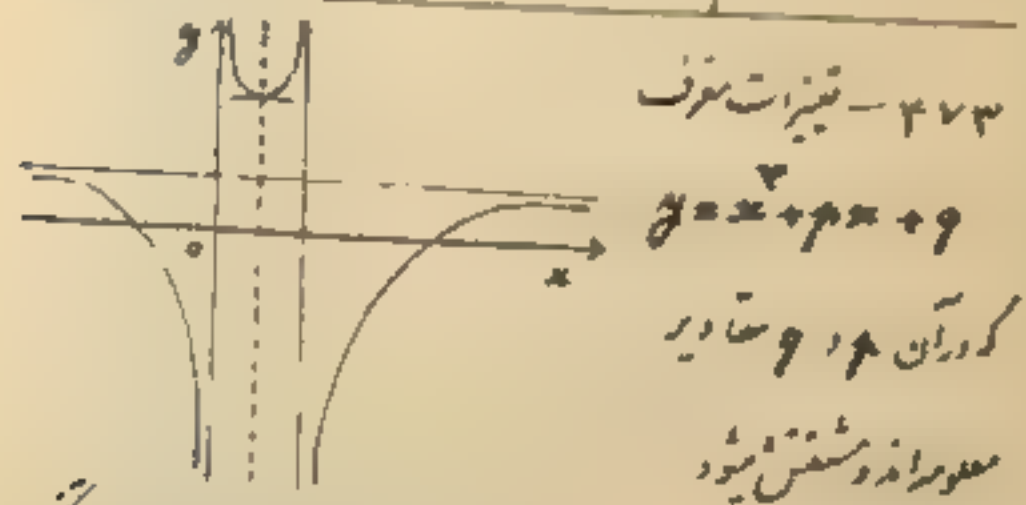 ۴۷۳ – تغییرات تعرف
y = x² + px + q
که در آن p و q مقادیر
معلوم‌اند و مشتق میشود
y
o
x